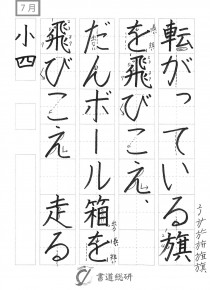 7月
転がっている旗
を飛びこえ、
だんボール箱を
飛びこえ 走る
小四
書道総研